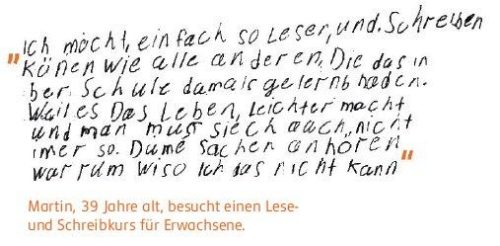 "Ich möcht, einfach so Leser, und. Schreiben
Könen wie alle anderen. Die das in
ber Schule damals gelernb haden.
Weil es Das Leben, Leichter macht
und man muss siech auch, nicht
imer so. Dume Sachen anhören
war rum wiso Ich das nicht Kann"
Martin, 39 Jahre alt, besucht einen Lese-
und Schreibkurs für Erwachsene.